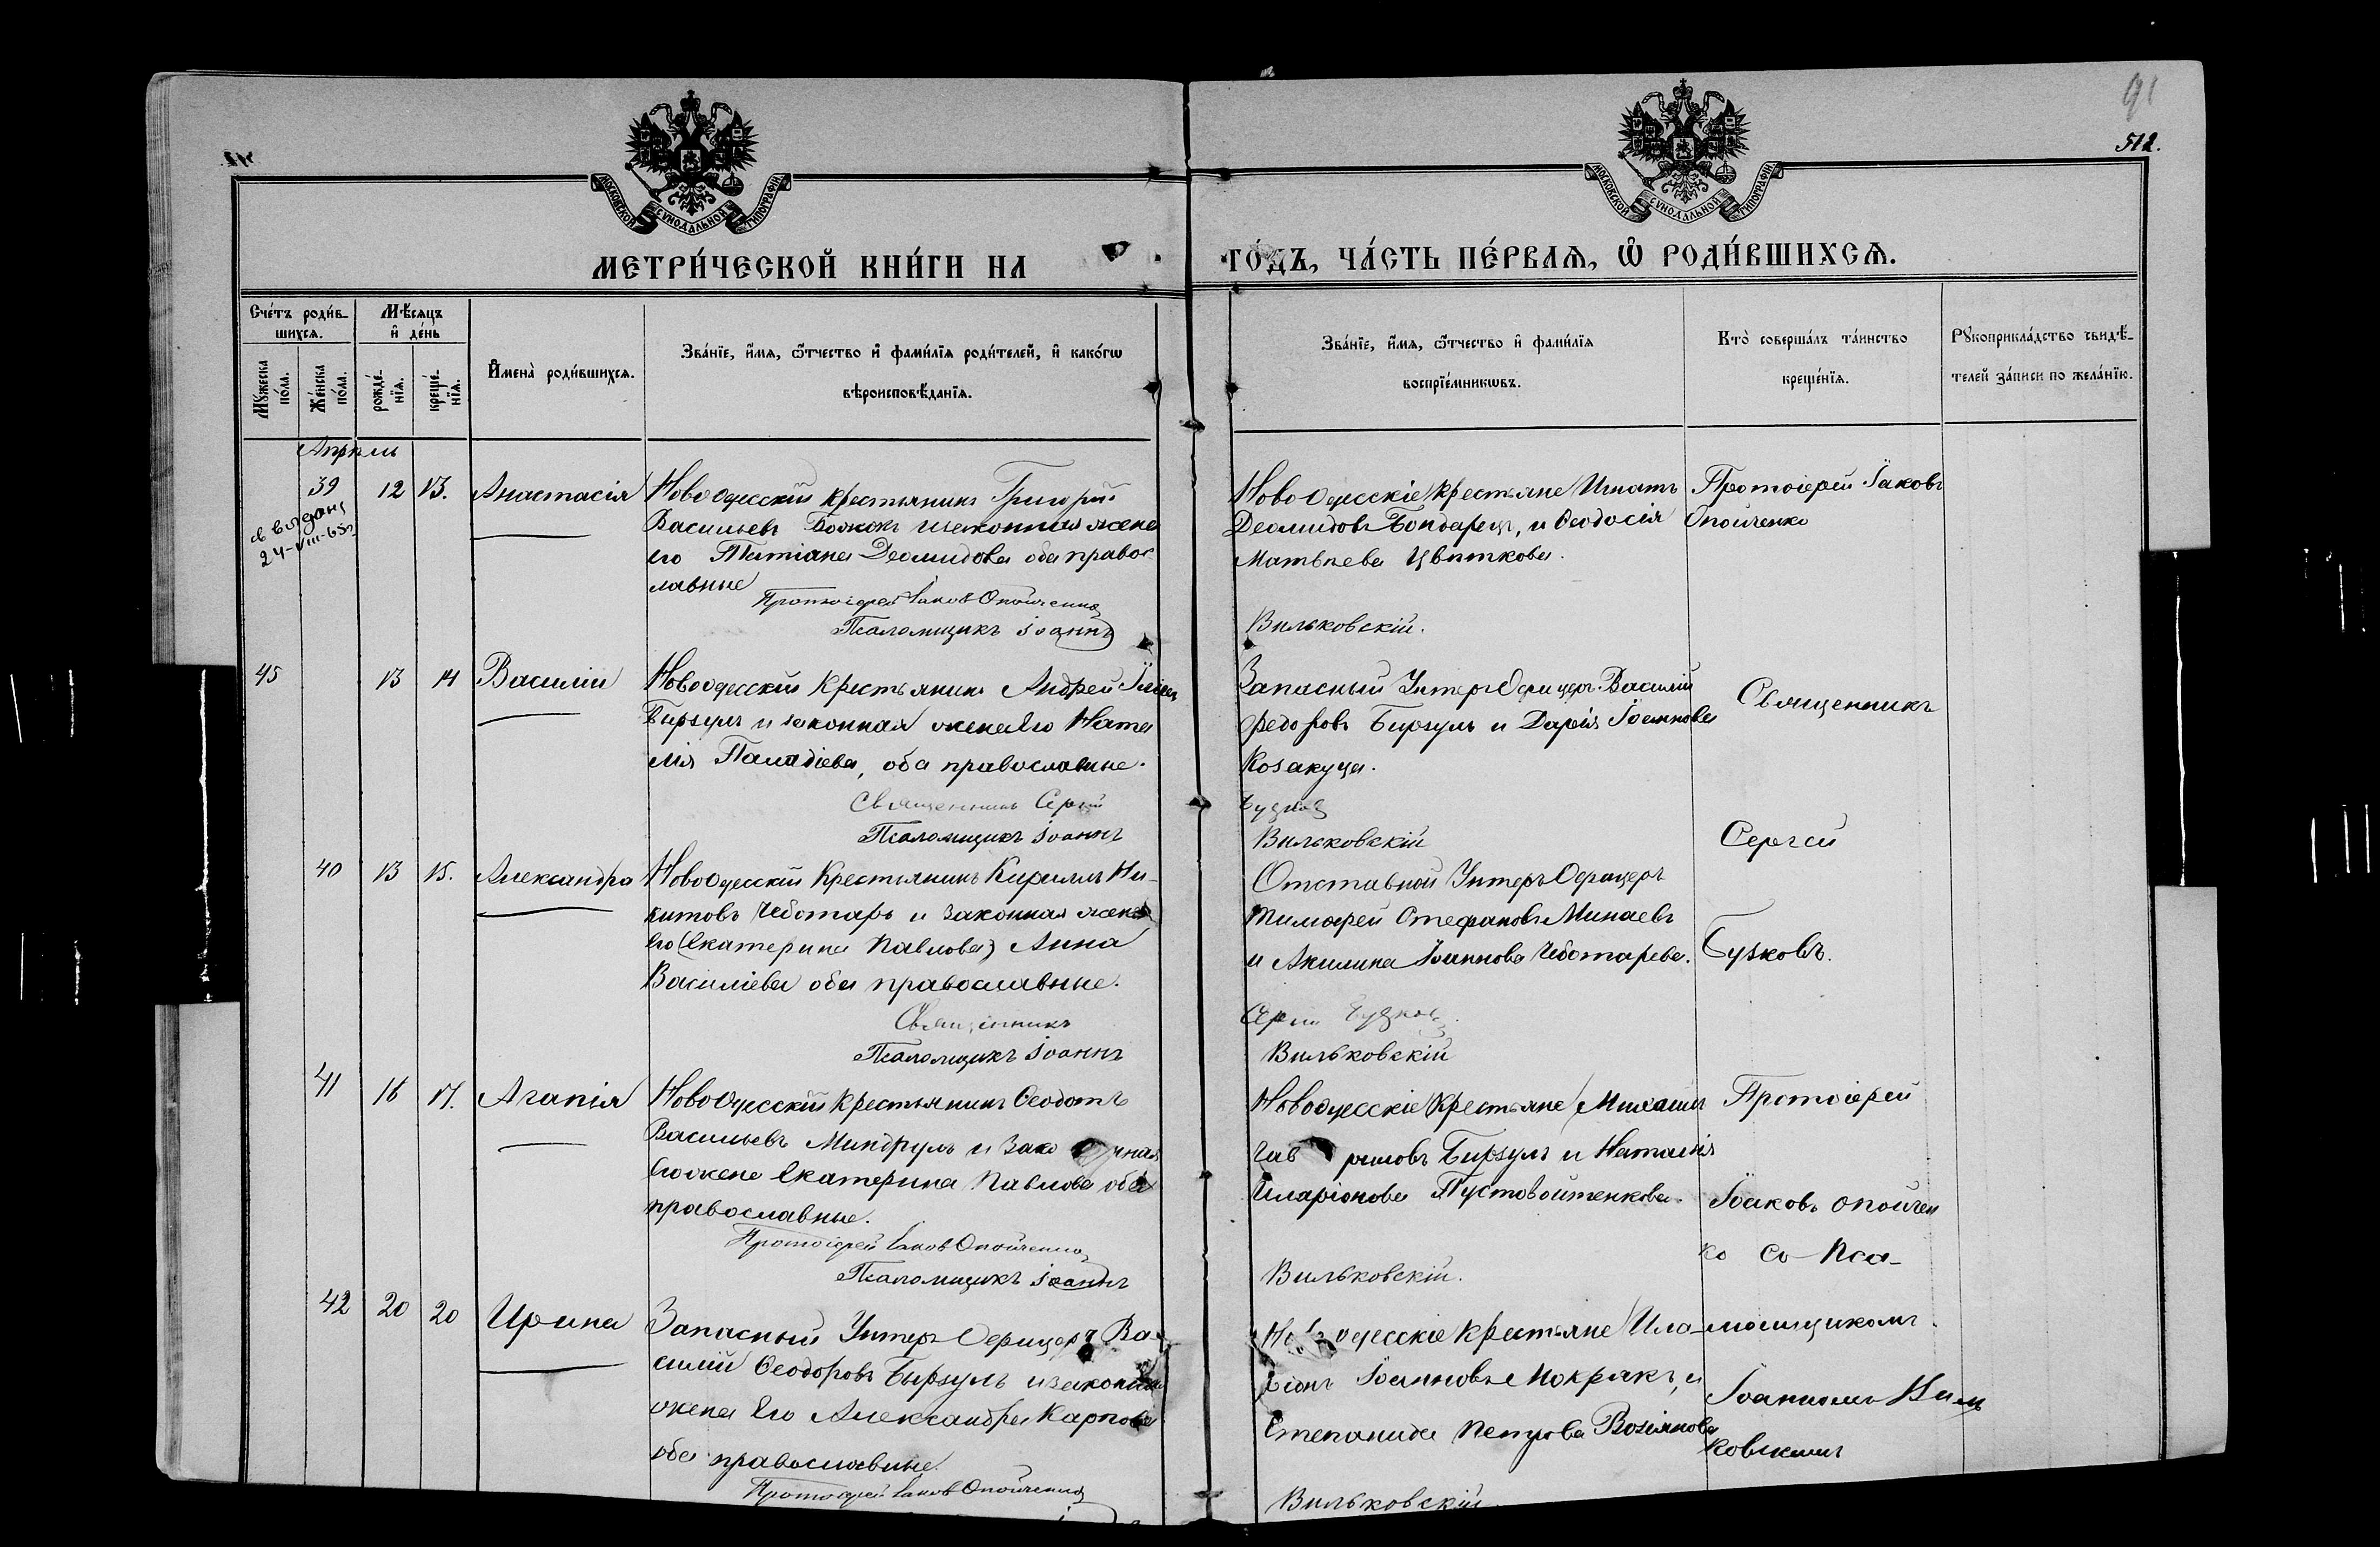 91
512.
МОСКОВСКОЙ СѴНОДАЛЬНОЙ ТИПОГРАФІИ
МОСКОВСКОЙ СѴНОДАЛЬНОЙ ТИПОГРАФІИ
МЕТРИ́ЧЕСКОЙ КНИ́ГИ НА
ГО́ДЪ, ЧА́СТЬ ПЕ́РВАѦ, Ѡ РОДИ́ВШИХСѦ.
Сче́тъ роди́в-
шихсѧ.
Мѣ́сѧцъ
и҆ де́нь
Мꙋ́жеска
по́ла.
Же́нска
по́ла.
рожде́-
нїѧ.
креще́-
нїѧ.
И҆мена̀ роди́вшихсѧ.
Зва́нїе, и҆́мѧ, ѻ҆́тчество и҆ фами́лїѧ роди́телей, и҆ како́гѡ
вѣроисповѣ́данїѧ.
Зва́нїе, и҆́мѧ, ѻ҆́тчество и҆ фами́лїѧ
воспрїе́мникѡвъ.
Кто̀ соверша́лъ та́инство
креще́нїѧ.
Рꙋкоприкла́дство свидѣ́-
телей за́писи по жела́нїю.
Апрель
39 12 13. Анастасія
св выдано
24-VIII-65г
Новоодесскій крестьянинъ Григорій
Васильевъ Божокъ и законная жена
его Татіана Деомидова оба правос
лавные
Протоіерей Іаков Опойченко
Псаломщикъ Іоаннъ
Новоодесскіе крестьяне Игнатъ
Деомидовъ Бондарец, и Ѳеодосія
Матвѣева Цвѣткова.
Вильковскій.
Протоіерей Іаковъ
Опойченко
45 13 14 Василій
Новоодесскій крестьянинъ Андрей
Бирзулъ и законная жена его Ната
лія Паладіева, оба православные.
Священникъ Сергій
Псаломщикъ Іоаннъ
Запасный Унтеръ Офицеръ Василій
Федоровъ Бирзулъ и Дарія Іоаннова
Козакуца.
Бузков
Вильковскій
Священникъ
Сергей
Бузковъ.
40 13 15. Александра
Новоодесскій Крестьянинъ Кириллъ Ни-
китовъ Чеботарь и законная жена
его (Екатерина Павлова) Анна
Василіева оба православные.
Священникъ
Псаломщикъ Іоаннъ
Отставной Унтеръ Офицеръ
Тимофей Стефановъ Минаевъ
и Акилина Іоаннова Чеботарева.
Сергій Бузков
Вильковскій
41 16 17. Агапія
Новоодесскій крестьянинъ Ѳеодотъ
Васильевъ Миндрулъ и зако нная
его жена Екатерина Павлова оба
православные.
Протоіерей Іаков Опойченко
Псаломщикъ Іоаннъ
Новоодесскіе крестьяне Михаилъ
Гав риловъ Бирзулъ и Наталія
Иларіонова Пустовойтенкова.
Вильковскій.
Протоіерей
Іоаковъ Опойчен
ко со Пса-
ломщикомъ
Іоанномъ Виль
ковскимъ
42 20 20 Ирина
Запасный Унтеръ Офицеръ Ва-
силій Ѳеодоровъ Бырзулъ и законная
жена Его Александра Карпова
оба православные.
Протоіерей Іаков Опойченко
Новоодесскіе крестьяне Ила-
ріонъ Іоанновъ Мокрякъ, и
Степанида Петрова Возіянова
Вильковскій.